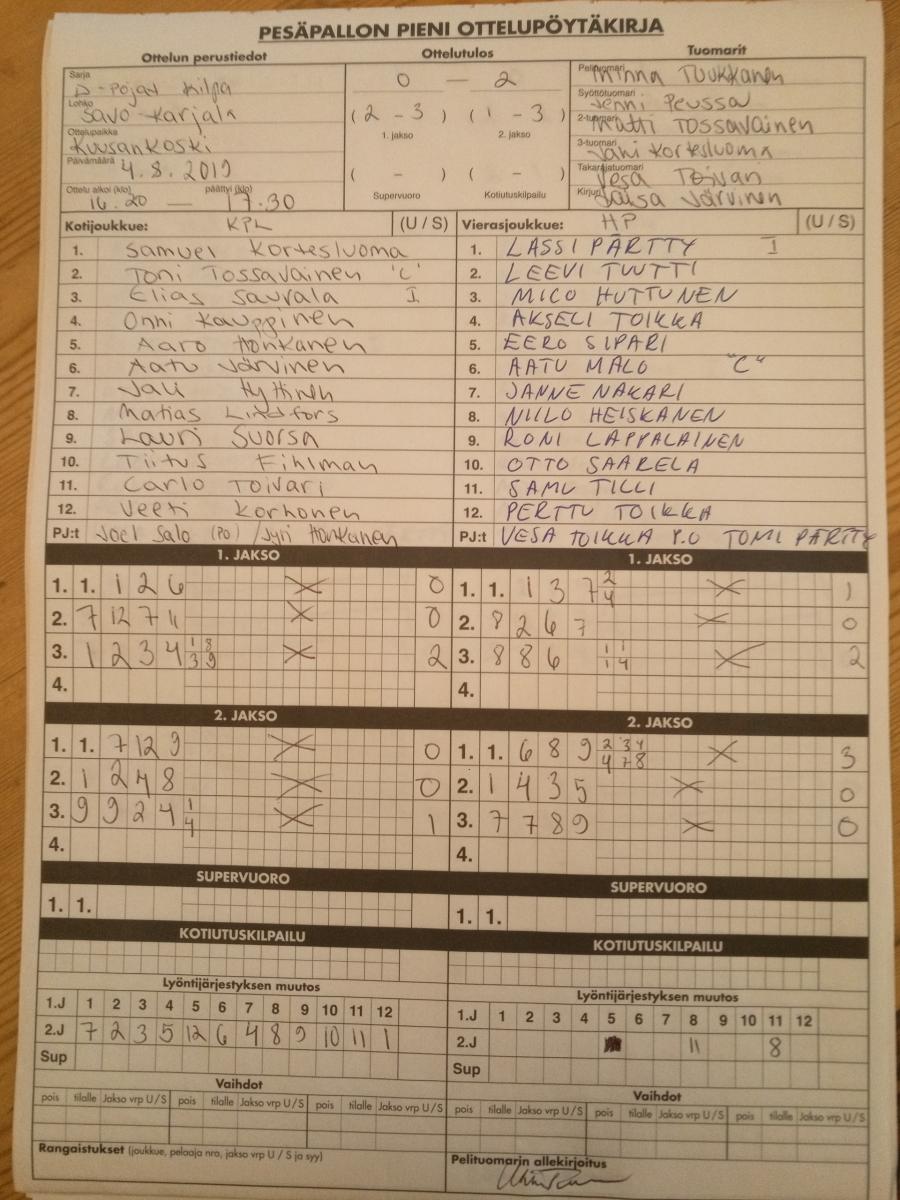 PESÄPALLON PIENI OTTELUPÖYTÄKIRJA
Ottelun perustiedot
Sarja
D-Pojat Kilpa
Lohko
Savo-Karjala
Ottelupaikka
Kuusankoski
Päivämäärä
4.8.2019
Ottelu alkoi (klo) päättyi (klo)
16.20 — 17.30
Ottelutulos
0 — 2
(2 - 3) (1 - 3)
1. jakso 2. jakso
( - ) ( - )
Supervuoro Kotiutuskilpailu
Tuomarit
Pelituomari
Minna Tuukkanen
Syöttötuomari
Jenni Peussa
2-tuomari
Matti Tossavainen
3-tuomari
Jani Kortesluoma
Takarajatuomari
Vesa Toivari
Kirjuri
Jaisa Järvinen
Kotijoukkue: KPL (U / S)
1. Samuel Kortesluoma
2. Toni Tossavainen "C"
3. Elias Saurala I
4. Onni Kauppinen
5. Aaro Honkanen
6. Aatu Järvinen
7. Jali Hyttinen
8. Matias Lindfors
9. Lauri Suorsa
10. Tiitus Fihlman
11. Carlo Toivari
12. Veeti Korhonen
PJ:t Joel Salo (PO) / Jyri Honkanen
Vierasjoukkue: HP (U / S)
1. LASSI PÄRTTY I
2. LEEVI TUUTTI
3. MICO HUTTUNEN
4. AKSELI TOIKKA
5. EERO SIPARI
6. AATU MALO "C"
7. JANNE NAKARI
8. NIILO HEISKANEN
9. RONI LAPPALAINEN
10. OTTO SAARELA
11. SAMU TILLI
12. PERTTU TOIKKA
PJ:t VESA TOIKKA P.O TOMI PÄRTTY
1. JAKSO
1. 1. 1 2 6 X 0
2. 7 12 7 11 X 0
3. 1 2 3 4 1 8 X 2
3 9
4.
1. JAKSO
1. 1. 1 3 7 2 X 1
4
2. 8 2 6 7 X 0
3. 8 8 6 1 1 X 2
1 4
4.
2. JAKSO
1. 1. 7 12 9 X 0
2. 1 2 4 8 X 0
3. 9 9 2 4 1 X 1
4
4.
2. JAKSO
1. 1. 6 8 9 2 3 4 X 3
4 7 8
2. 1 4 3 5 X 0
3. 7 7 8 9 X 0
4.
SUPERVUORO
1. 1.
SUPERVUORO
1. 1.
KOTIUTUSKILPAILU
KOTIUTUSKILPAILU
Lyöntijärjestyksen muutos
1.J 1 2 3 4 5 6 7 8 9 10 11 12
2.J 7 2 3 5 12 6 4 8 9 10 11 1
Sup
Lyöntijärjestyksen muutos
1.J 1 2 3 4 5 6 7 8 9 10 11 12
2.J 11 8
Sup
Vaihdot
pois tilalle Jakso vrp U / S pois tilalle Jakso vrp U / S pois tilalle Jakso vrp U / S
Vaihdot
pois tilalle Jakso vrp U / S pois tilalle Jakso vrp U / S pois tilalle Jakso vrp U / S
Rangaistukset (joukkue, pelaaja nro, jakso vrp U / S ja syy)
Pelituomarin allekirjoitus